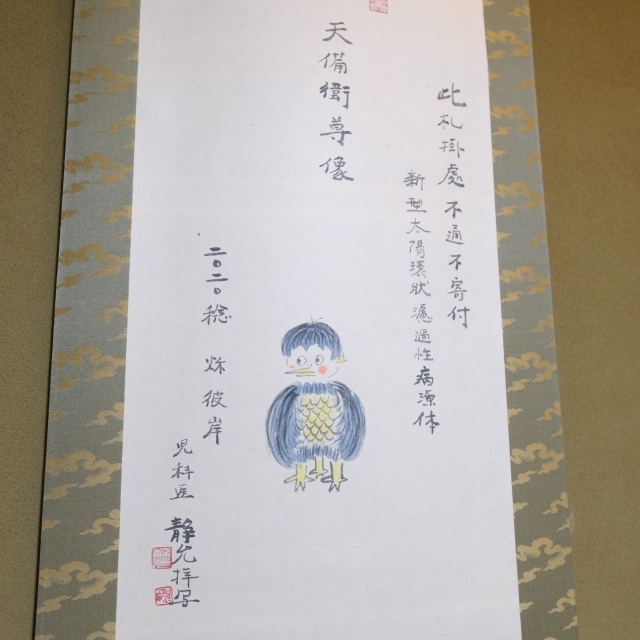 此札掛處不通不寄付
新型太陽環状濾過性病源体
天備衛尊像
二〇二〇稔 秌彼岸
児科医 静允拝写